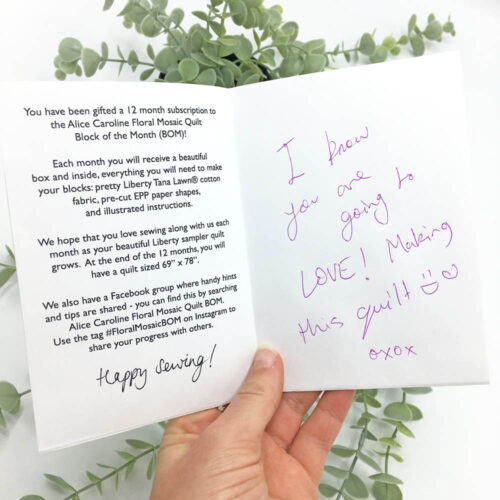 You have been gifted a 12 month subscription to
the Alice Caroline Floral Mosaic Quilt
Block of the Month (BOM)!
Each month you will receive a beautiful
box and inside, everything you will need to make
your blocks: pretty Liberty Tana Lawn® cotton
fabric, pre-cut EPP paper shapes,
and illustrated instructions.
We hope that you love sewing along with us each
month as your beautiful Liberty sampler quilt
grows. At the end of the 12 months, you will
have a quilt sized 69" x 78".
We also have a Facebook group where handy hints
and tips are shared - you can find this by searching
Alice Caroline Floral Mosaic Quilt BOM.
Use the tag #FloralMosaicBOM on Instagram to
share your progress with others.
Happy Sewing!
I know
you are
going to
LOVE! Making
this quilt
oxox